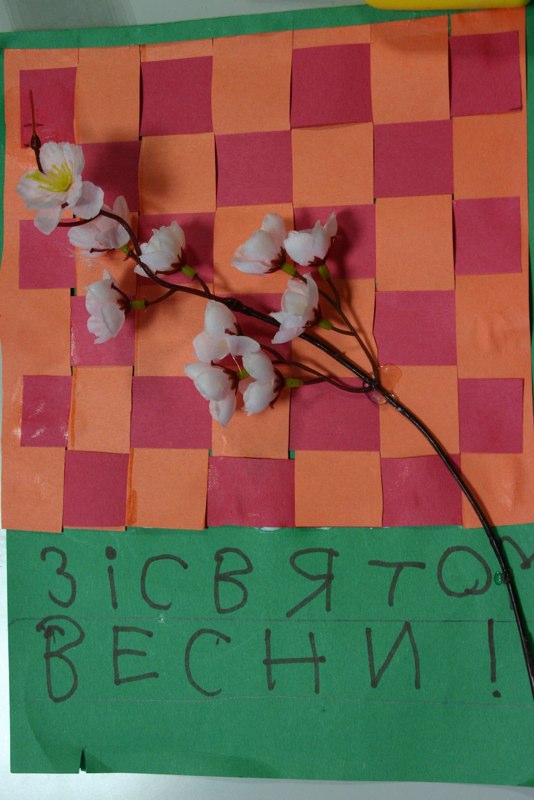 ЗІ СВЯТОМ
ВЕСНИ!